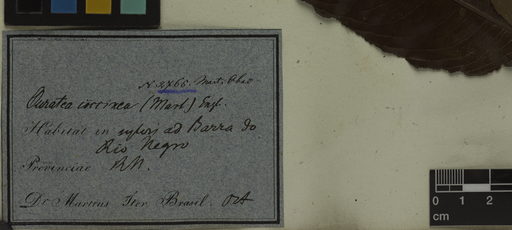 N. 2766. Mart. Obs.
Ouratea coccinea (Mart.) Engl.
Habitat in sylvis ad Barra do
Rio Negro
Provinciae R.N.
Dr Martius Iter Brasil.
0 1 2
cm